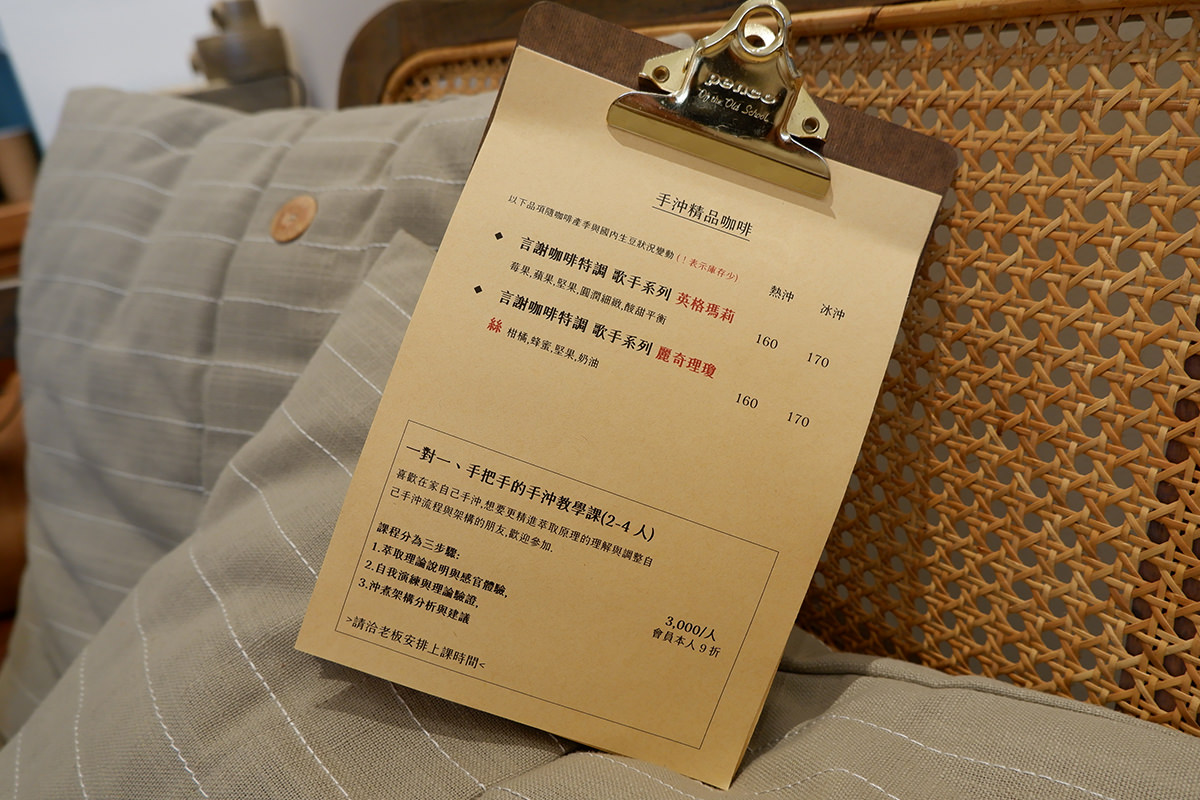 penco
By the Old School
手沖精品咖啡
以下品項隨咖啡產季與國內生豆狀況變動 (！表示庫存少)
熱沖 冰沖
◆ 言謝咖啡特調 歌手系列 英格瑪莉
莓果,蘋果,堅果,圓潤細緻,酸甜平衡
160 170
◆ 言謝咖啡特調 歌手系列 麗奇理瓊
絲 柑橘,蜂蜜,堅果,奶油
160 170
一對一、手把手的手沖教學課(2-4 人)
喜歡在家自己手沖,想要更精進萃取原理的理解與調整自
己手沖流程與架構的朋友,歡迎參加.
課程分為三步驟:
1.萃取理論說明與感官體驗,
2.自我演練與理論驗證,
3.沖煮架構分析與建議
3,000/人
會員本人 9 折
>請洽老板安排上課時間<